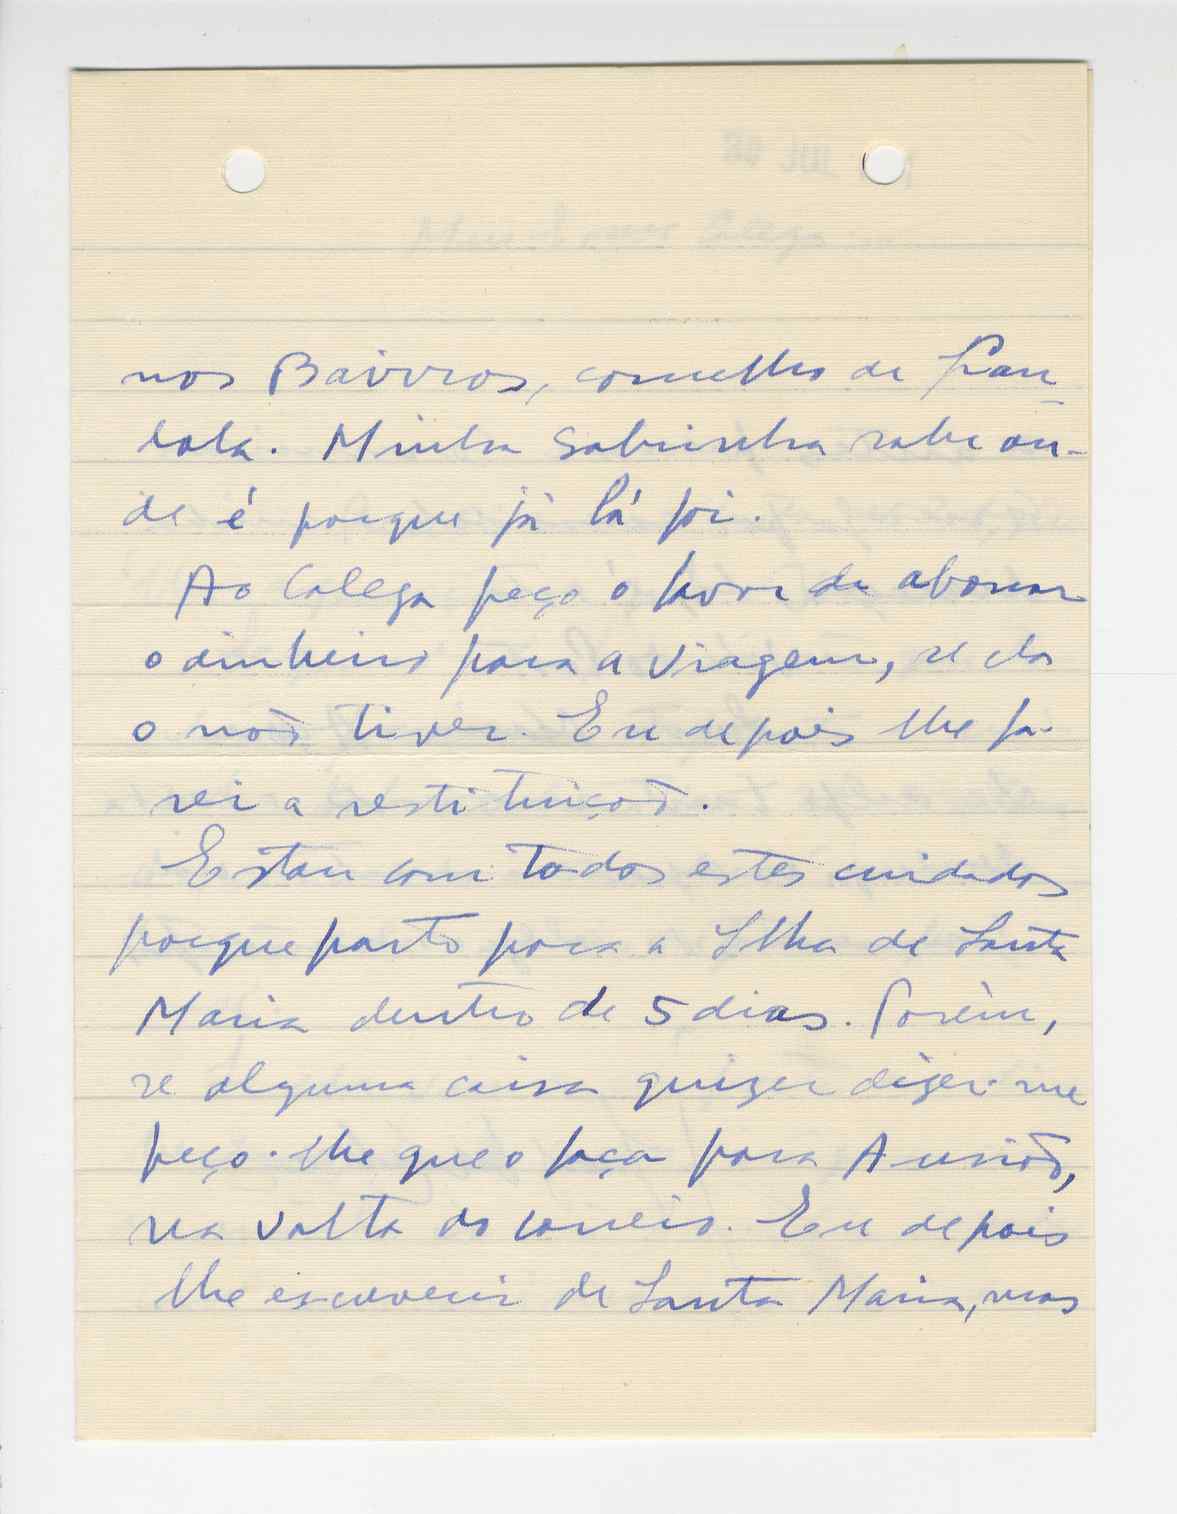 nos Bairros, concelho de Gran-
dola. Minha Sobrinha sabe on-
de é porque já lá foi.
Ao Colega peço o favor de abonar
o dinheiro para a viagem, se ela
o não tiver. Eu depois lhe fa-
rei a restituição.
Estou com todos estes cuidados
porque parto para a Ilha de Santa
Maria dentro de 5 dias. Porém,
se alguma coisa quizer dizer-me
peço-lhe que o faça para A união,
na volta do correio. Eu depois
lhe escreverei de Santa Maria, mas